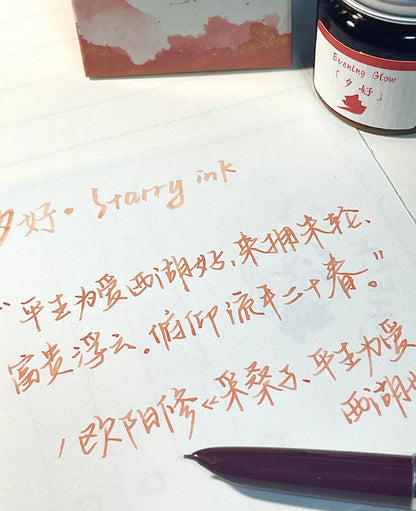 Evening Glow
「夕好」
夕好 · Starry ink
"平生为爱西湖好,来拥朱轮、
富贵浮云。俯仰流年二十春。"
/欧阳修《采桑子·平生为爱
西湖好